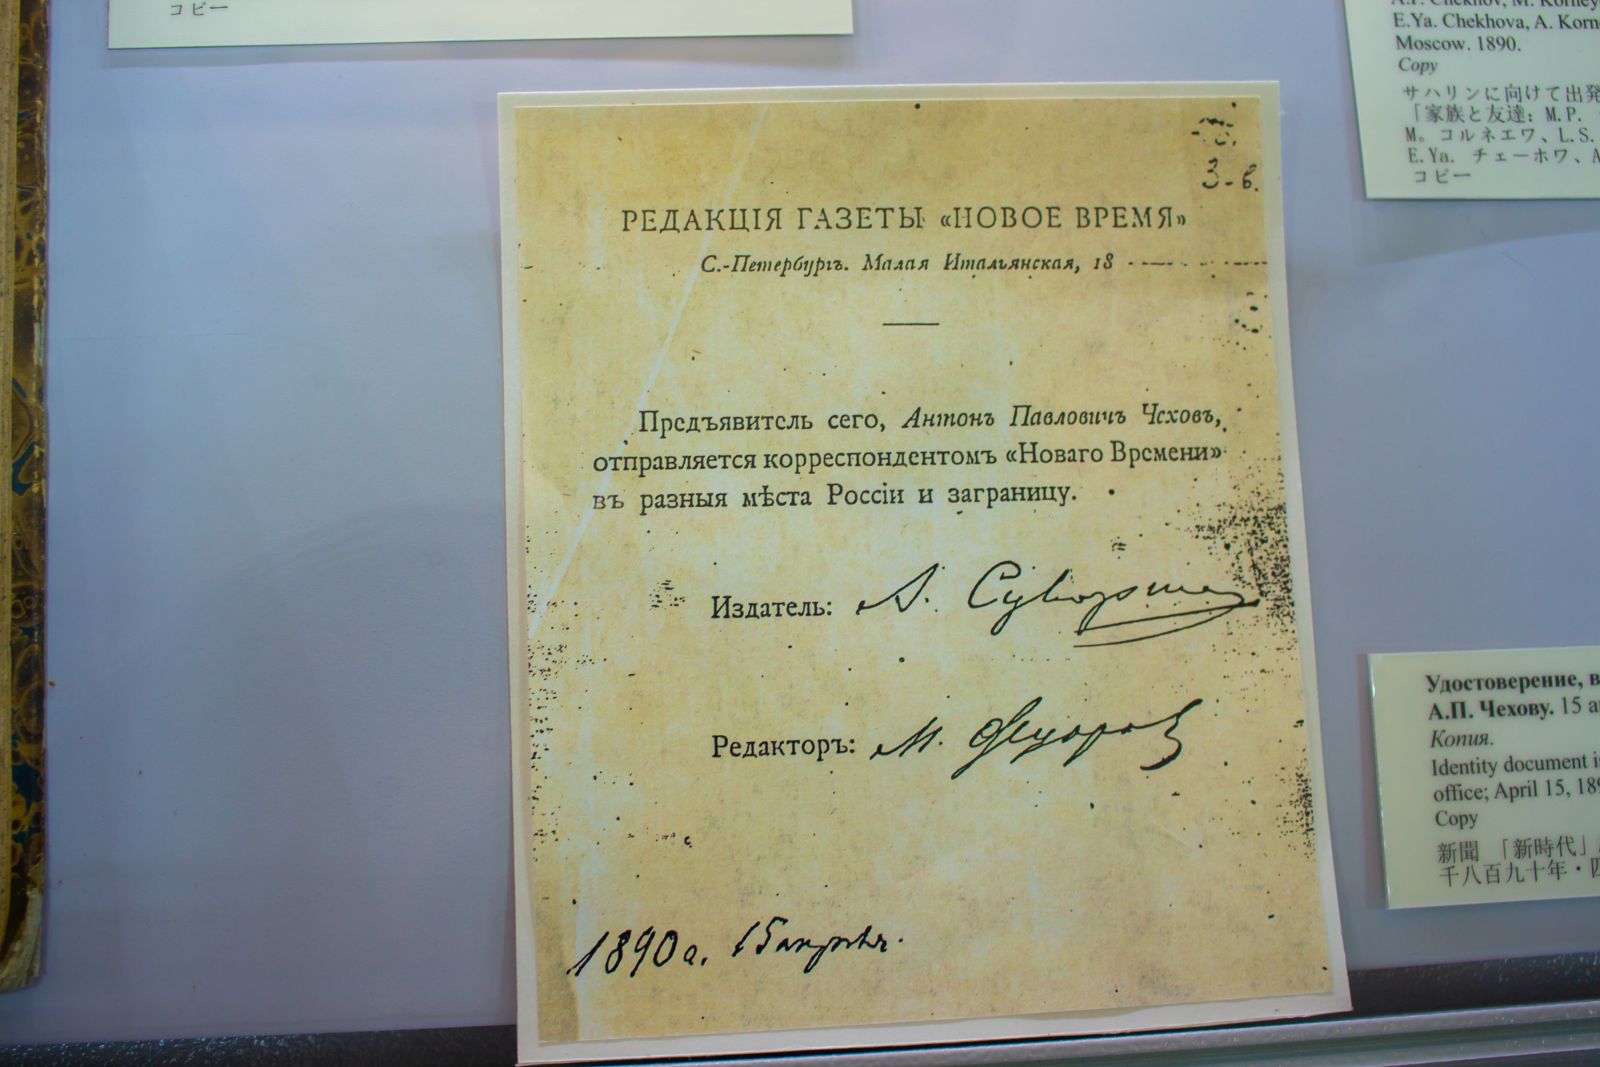 コピー
A.P. Chekhov, M. Korney
E.Ya. Chekhova, A. Korn
Moscow. 1890.
Copy
サハリンに向けて出発
「家族と友達: M.P.
M。コルネエワ、L.S.
E.Ya. チェーホワ、A
コピー
3-в.
РЕДАКЦІЯ ГАЗЕТЫ «НОВОЕ ВРЕМЯ»
С.-Петербургъ. Малая Итальянская, 18
Предъявитель сего, Антонъ Павловичъ Чеховъ,
отправляется корреспондентомъ «Новаго Времени»
въ разныя мѣста Россіи и заграницу.
Издатель: А. Суворин
Редакторъ: М. Федоров
1890 г. 15 апрѣля.
Удостоверение, в
А.П. Чехову. 15 а
Копия.
Identity document i
office; April 15, 189
Copy
新聞 「新時代」
千八百九十年・四